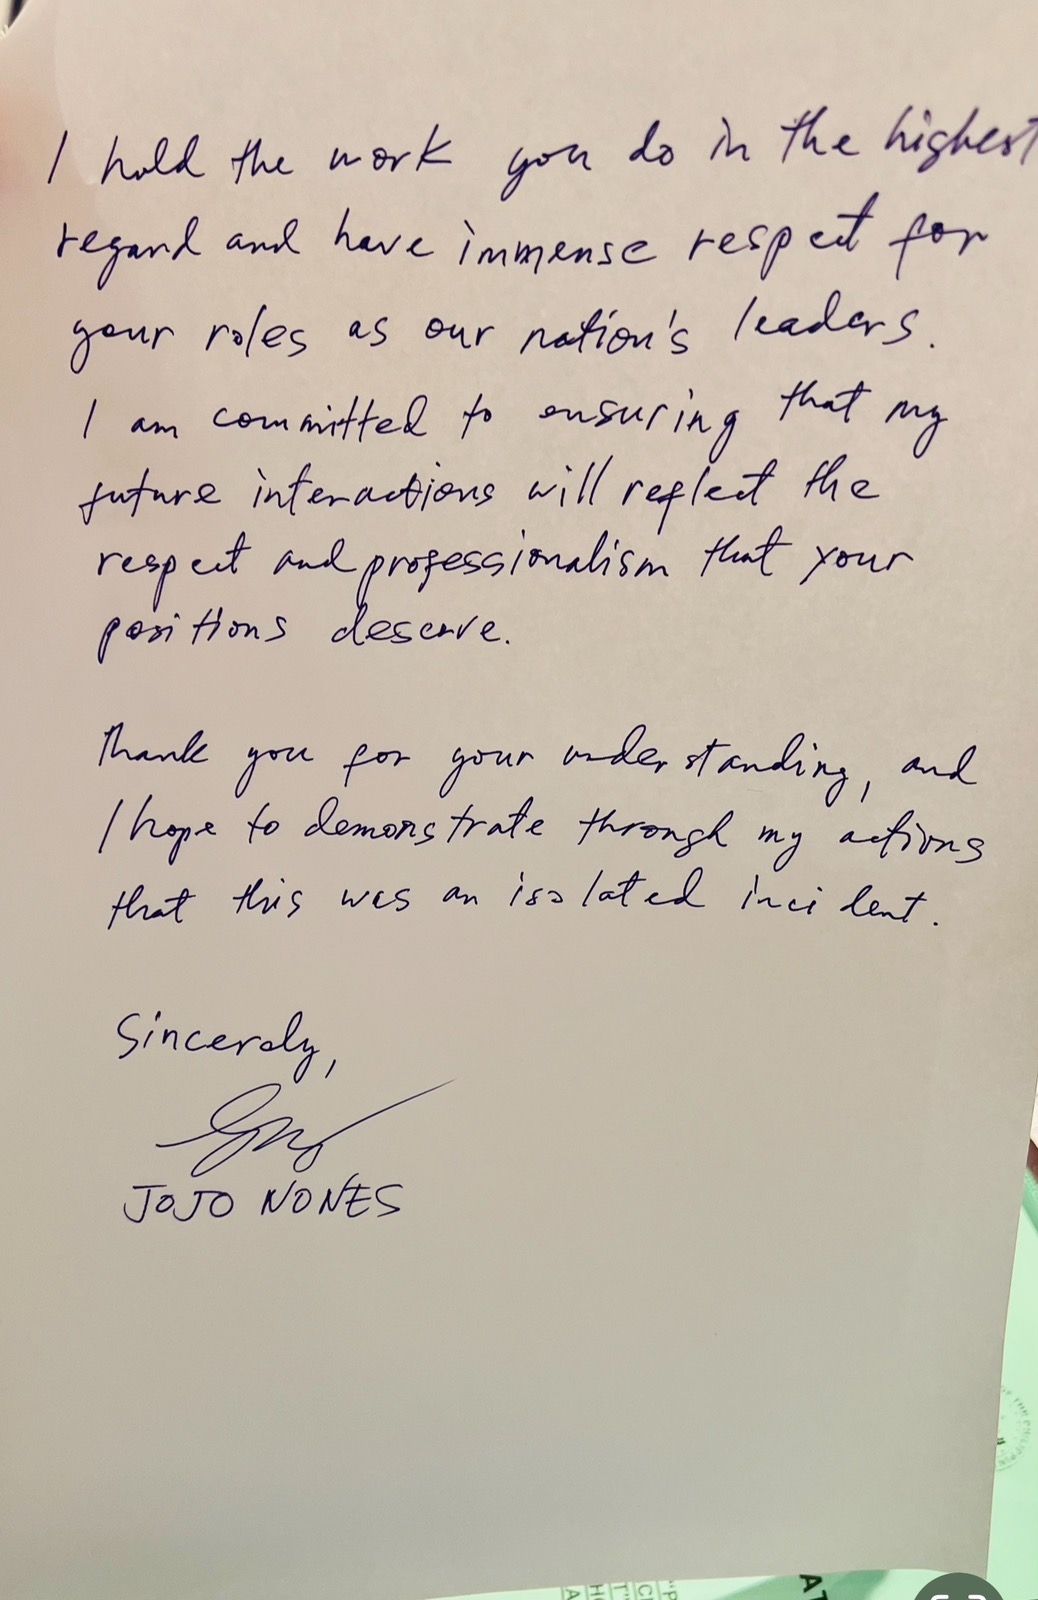 I hold the work you do in the highest
regard and have immense respect for
your roles as our nation's leaders.
I am committed to ensuring that my
future interactions will reflect the
respect and professionalism that your
positions deserve.
Thank you for your understanding, and
I hope to demonstrate through my actions
that this was an isolated incident.
Sincerely,
JOJO NONES